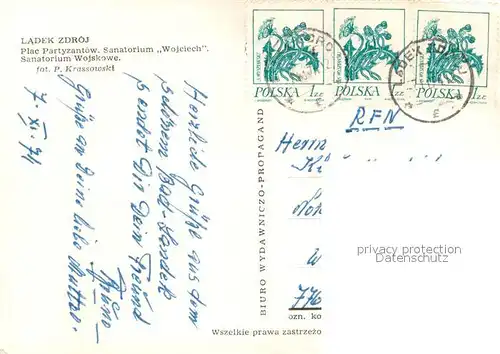 LĄDEK ZDRÓJ
Plac Partyzantów. Sanatorium „Wojciech".
Sanatorium Wojskowe.
fot. P. Krassowski
7. XI. 74
Herzliche Grüße aus dem
schönen Bad-Landek
sendet Dir Dein Freund
Bruno
Grüße an Deine liebe Mutter.
BIURO WYDAWNICZO-PROPAGAND
POLSKA 1 ZŁ
POLSKA 1 ZŁ
POLSKA 1 ZŁ
LĄDEK
E
RFN
Herrn
776
privacy protection
ozn. ko
Wszelkie prawa zastrzeżo